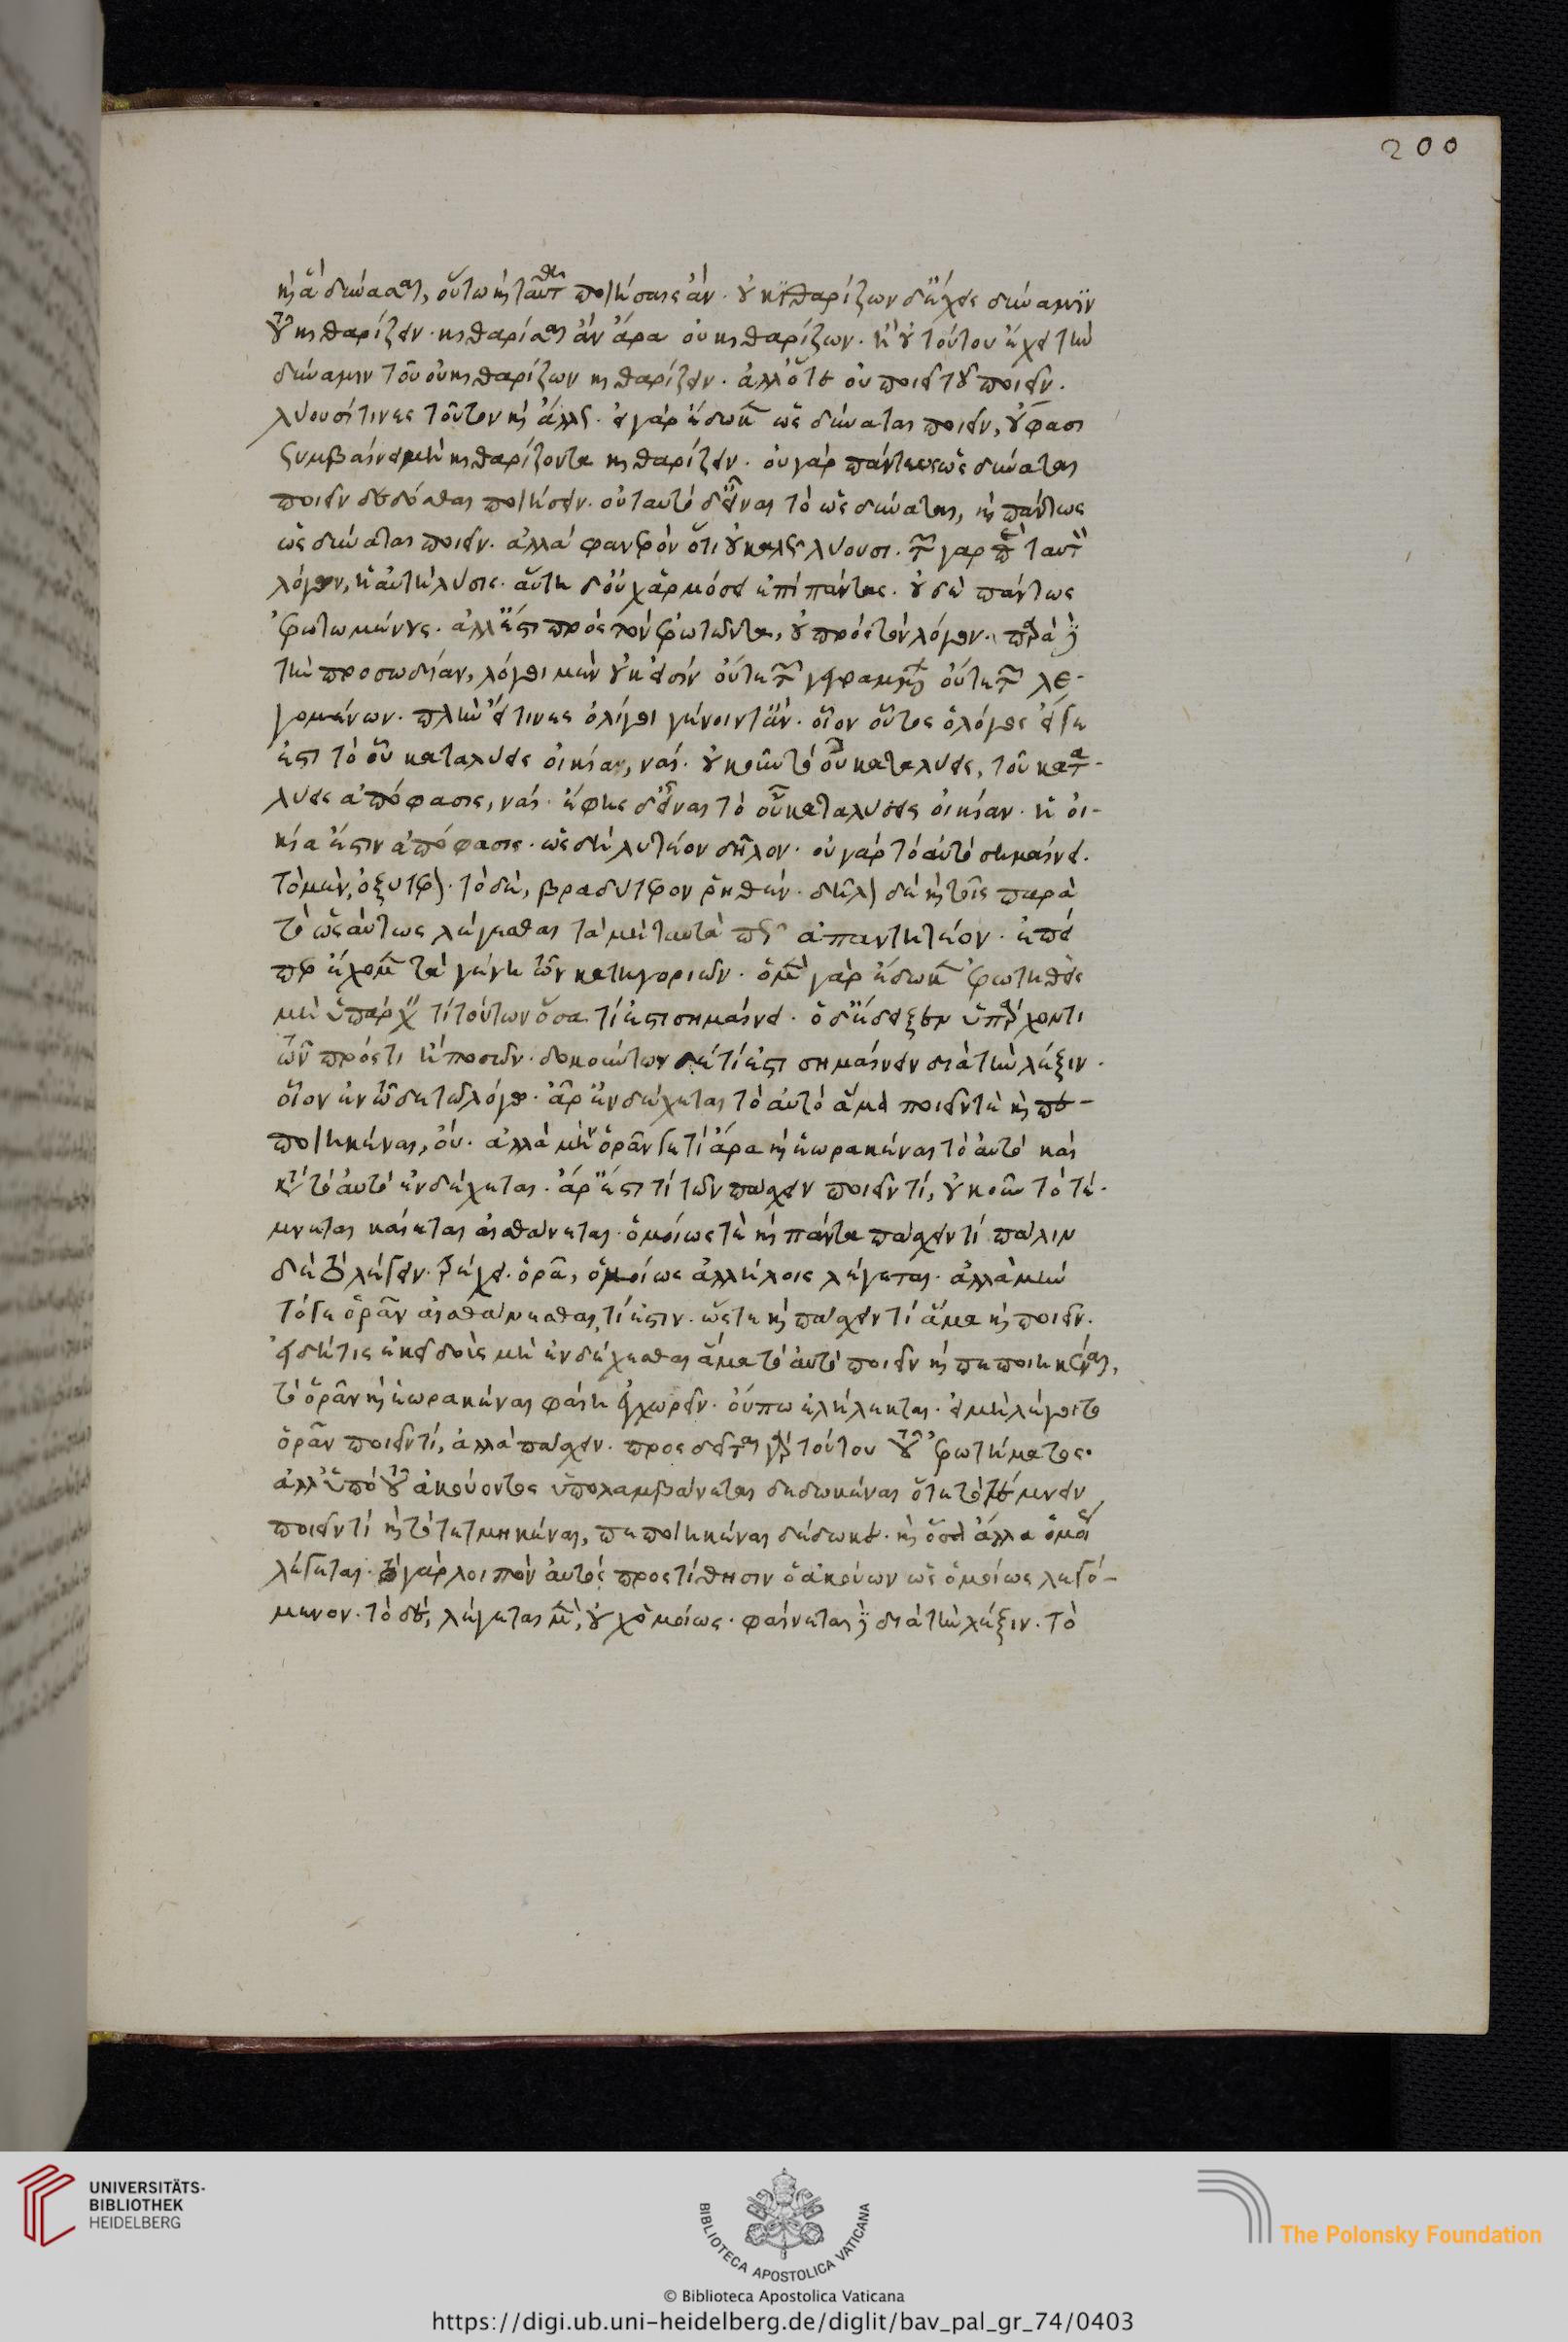 καὶ ἃ δύνασαι, οὕτω καὶ ταῦτα ποιήσαις ἄν· οὐ κιθαρίζων δ' ἔχεις δύναμιν
τοῦ κιθαρίζειν· κιθαρίσαις ἂν ἄρα οὐ κιθαρίζων· ἢ οὐ τούτου ἔχει τὴν
δύναμιν τοῦ οὐ κιθαρίζων κιθαρίζειν· ἀλλ' ὅτε οὐ ποιεῖ τοῦ ποιεῖν·
λύουσί τινες τοῦτον καὶ ἄλλως· εἰ γὰρ ἔδωκεν ὡς δύναται ποιεῖν, οὔ φασι
ξυμβαίνειν μὴ κιθαρίζοντα κιθαρίζειν· οὐ γὰρ πάντως ὡς δύναται
ποιεῖν δεδόσθαι ποιήσειν· οὐ ταυτὸ δ' εἶναι τὸ ὡς δύναται, καὶ πάντως
ὡς δύναται ποιεῖν· ἀλλὰ φανερὸν ὅτι οὐ καλῶς λύουσι· τῶν γὰρ παρὰ ταυτὸν
λόγων, ἡ αὐτὴ λύσις· αὕτη δ' οὐχ ἁρμόσει ἐπὶ πάντας· οὐδὲ πάντως
ἐρωτωμένους· ἀλλ' ἔστι πρὸς τὸν ἐρωτῶντα, οὐ πρὸς τὸν λόγον· παρὰ δὲ
τὴν προσωδίαν, λόγοι μὲν οὐκ εἰσὶν οὔτε τῶν γεγραμμένων οὔτε τῶν λε-
γομένων· πλὴν εἴ τινες ὀλίγοι γένοιντ' ἄν· οἷον οὗτος ὁ λόγος ἆρά γε
ἐστὶ τὸ οὗ καταλύεις οἰκία, ναί· οὐκοῦν τὸ οὐ καταλύεις, τοῦ κατα-
λύεις ἀπόφασις, ναί· ἔφης δ' εἶναι τὸ οὗ καταλύεις οἰκίαν· ἡ οἰ-
κία ἔστιν ἀπόφασις· ὡς δὴ λυτέον δῆλον· οὐ γὰρ τὸ αὐτὸ σημαίνει·
τὸ μὲν, ὀξύτερον· τὸ δὲ, βραδύτερον ῥηθέν· δῆλον δὲ καὶ τοῖς παρὰ
τὸ ὡσαύτως λέγεσθαι τὰ μὴ ταυτὰ πῶς ἀπαντητέον· ἐπεί
περ ἔχομεν τὰ γένη τῶν κατηγοριῶν· ὁ μὲν γὰρ ἔδωκεν ἐρωτηθεὶς
μὴ ὑπάρχειν τι τούτων ὅσα τί ἐστι σημαίνει· ὁ δ' ἔδειξεν ὑπάρχον τι
τῶν πρός τι ἢ ποσῶν· δοκούντων δέ τί ἐστι σημαίνειν διὰ τὴν λέξιν·
οἷον ἐν τῶδε τῶ λόγω· ἆρ' ἐνδέχεται τὸ αὐτὸ ἅμα ποιεῖν τε καὶ πε-
ποιηκέναι, οὔ· ἀλλὰ μὴν ὁρᾶν γέ τι ἅμα καὶ ἑωρακέναι τὸ αὐτὸ καὶ
κατὰ τὸ αὐτὸ ἐνδέχεται· ἆρ' ἔστι τί τῶν πάσχειν ποιεῖν τί, οὔ· οὐκοῦν τὸ τέ-
μνεται καίεται αἰσθάνεται· ὁμοίως τε καὶ πάντα πάσχειν τί πάλιν
δὲ τὸ λέγειν· τρέχειν· ὁρᾶν, ὁμοίως ἀλλήλοις λέγεται· ἀλλὰ μὴν
τό γε ὁρᾶν αἰσθάνεσθαι τί ἐστιν· ὥστε καὶ πάσχειν τί ἅμα καὶ ποιεῖν·
εἰ δή τις ἐκεῖ δοὺς μὴ ἐνδέχεσθαι ἅμα τὸ αὐτὸ ποιεῖν καὶ πεποιηκέναι,
τὸ ὁρᾶν καὶ ἑωρακέναι φαίη ἐγχωρεῖν· οὔπω ἐλήλεκται· εἰ μὴ λέγοι τὸ
ὁρᾶν ποιεῖν τί, ἀλλὰ πάσχειν· προσδεῖται γὰρ τούτου τοῦ ἐρωτήματος·
ἀλλ' ὑπὸ τοῦ ἀκούοντος ὑπολαμβάνεται δεδωκέναι ὅτε τὸ τέμνειν
ποιεῖν τί καὶ τὸ τετμηκέναι, πεποιηκέναι δέδωκε· καὶ ὅσα ἄλλα ὁμοίως
λέγεται· τὸ γὰρ λοιπὸν αὐτὸς προστίθησιν ὁ ἀκούων ὡς ὁμοίως λεγό-
μενον· τὸ δὲ, λέγεται μὲν, οὐχ ὁμοίως· φαίνεται δὲ διὰ τὴν λέξιν· τὸ
200
UNIVERSITÄTS-
BIBLIOTHEK
HEIDELBERG
BIBLIOTECA APOSTOLICA VATICANA
The Polonsky Foundation
© Biblioteca Apostolica Vaticana
https://digi.ub.uni-heidelberg.de/diglit/bav_pal_gr_74/0403